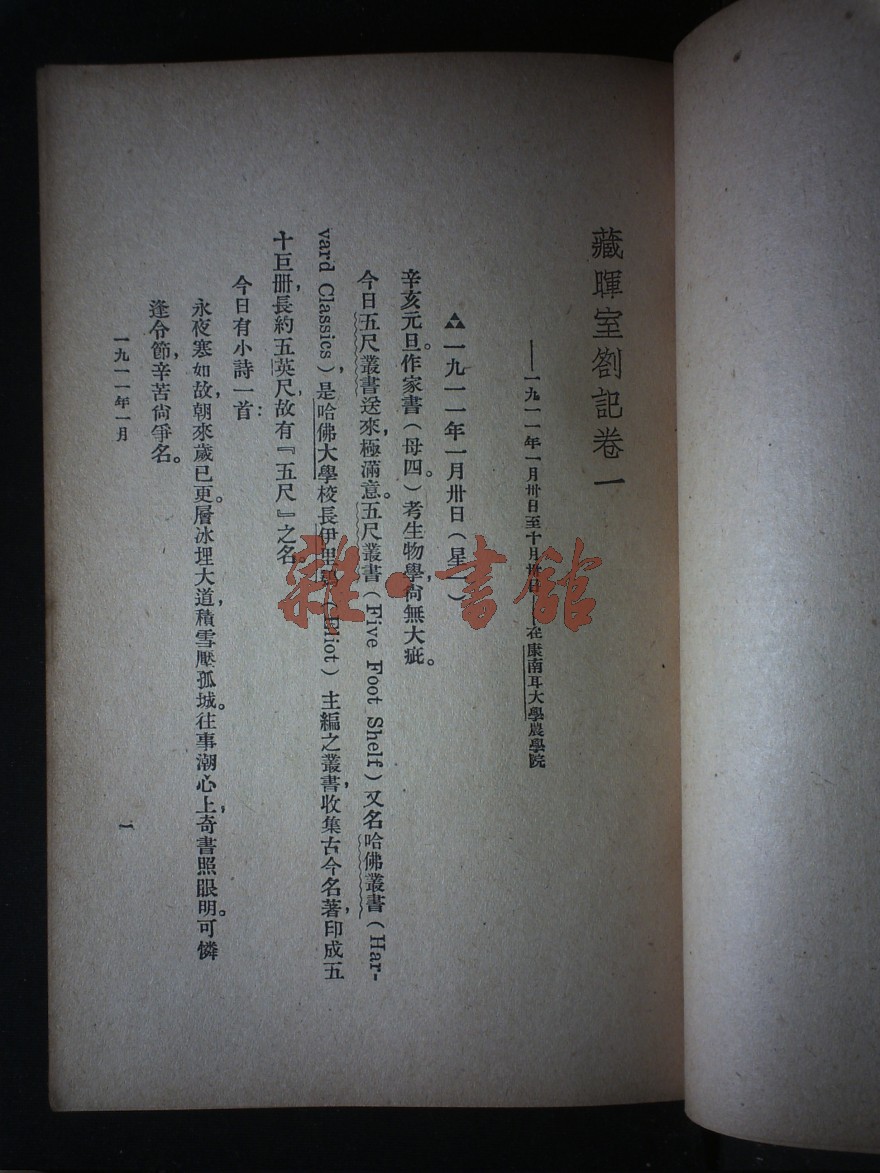 藏暉室劄記卷一
——一九一一年一月卅日至十月卅日——在康南耳大學農學院
一九一一年一月卅日(星一)
辛亥元旦。作家書(母四)。考生物學,尙無大疵。
今日五尺叢書送來,極滿意。五尺叢書(Five Foot Shelf)又名哈佛叢書(Har-
vard Classics),是哈佛大學校長伊里(Eliot)主編之叢書,收集古今名著,印成五
十巨册,長約五英尺,故有『五尺』之名。
今日有小詩一首:
永夜寒如故,朝來歲已更。層冰埋大道,積雪壓孤城。往事潮心上,奇書照眼明。可憐
逢令節,辛苦尙爭名。
一九一一年一月
一
雜·書館